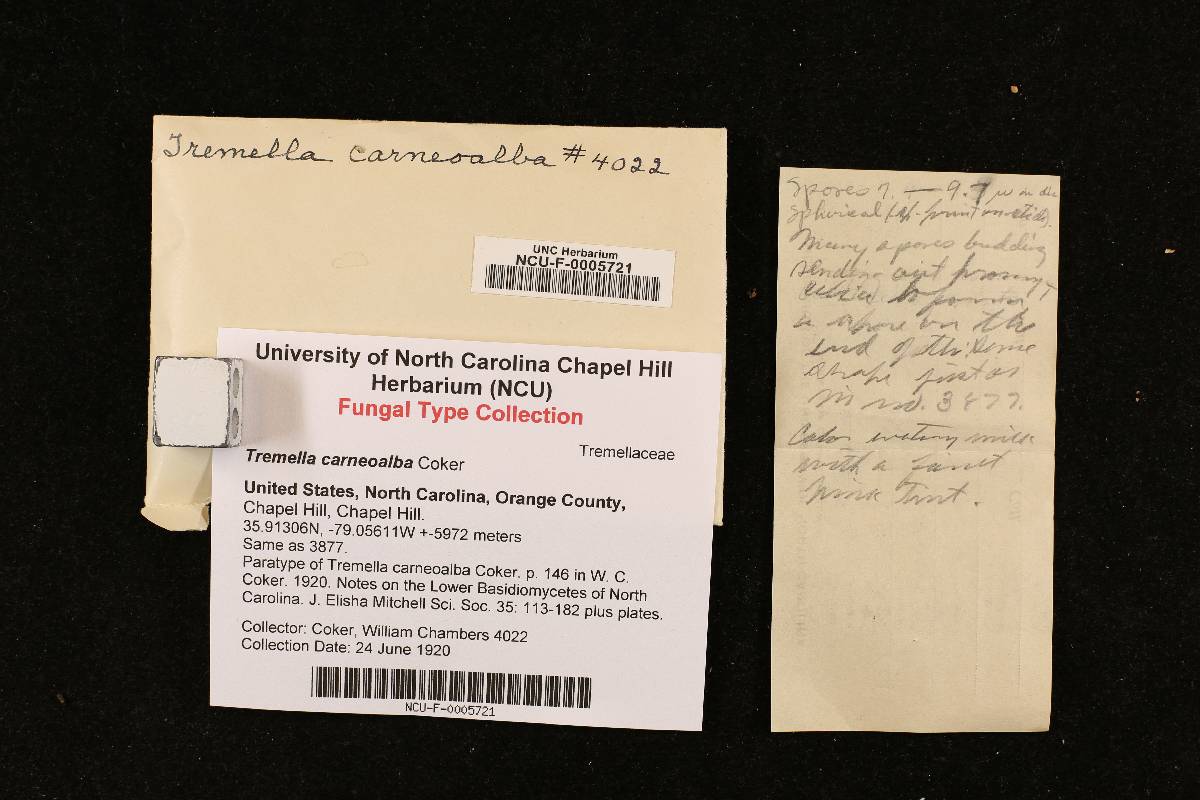 Tremella carneoalba #4022
UNC Herbarium
NCU-F-0005721
University of North Carolina Chapel Hill
Herbarium (NCU)
Fungal Type Collection
Tremellaceae
Tremella carneoalba Coker
United States, North Carolina, Orange County,
Chapel Hill, Chapel Hill.
35.91306N, -79.05611W +-5972 meters
Same as 3877.
Paratype of Tremella carneoalba Coker. p. 146 in W. C.
Coker. 1920. Notes on the Lower Basidiomycetes of North
Carolina. J. Elisha Mitchell Sci. Soc. 35: 113-182 plus plates.
Collector: Coker, William Chambers 4022
Collection Date: 24 June 1920
NCU-F-0005721
Spores 7. — 9.7 µ
spherical
Many spores budding
sending out
a spore on the
end of the same
shape just as
in no. 3877.
Color watery milk
with a faint
pink tint.